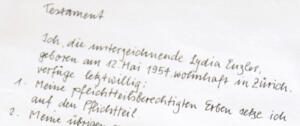 Testament
Ich, die unterzeichnende Lydia Enzler,
geboren am 12 Mai 1954 wohnhaft in Zürich
verfüge letztwillig:
1. Meine pflichtteilsberechtigten Erben setze ich
auf den Pflichtteil
2. Meine übrigen